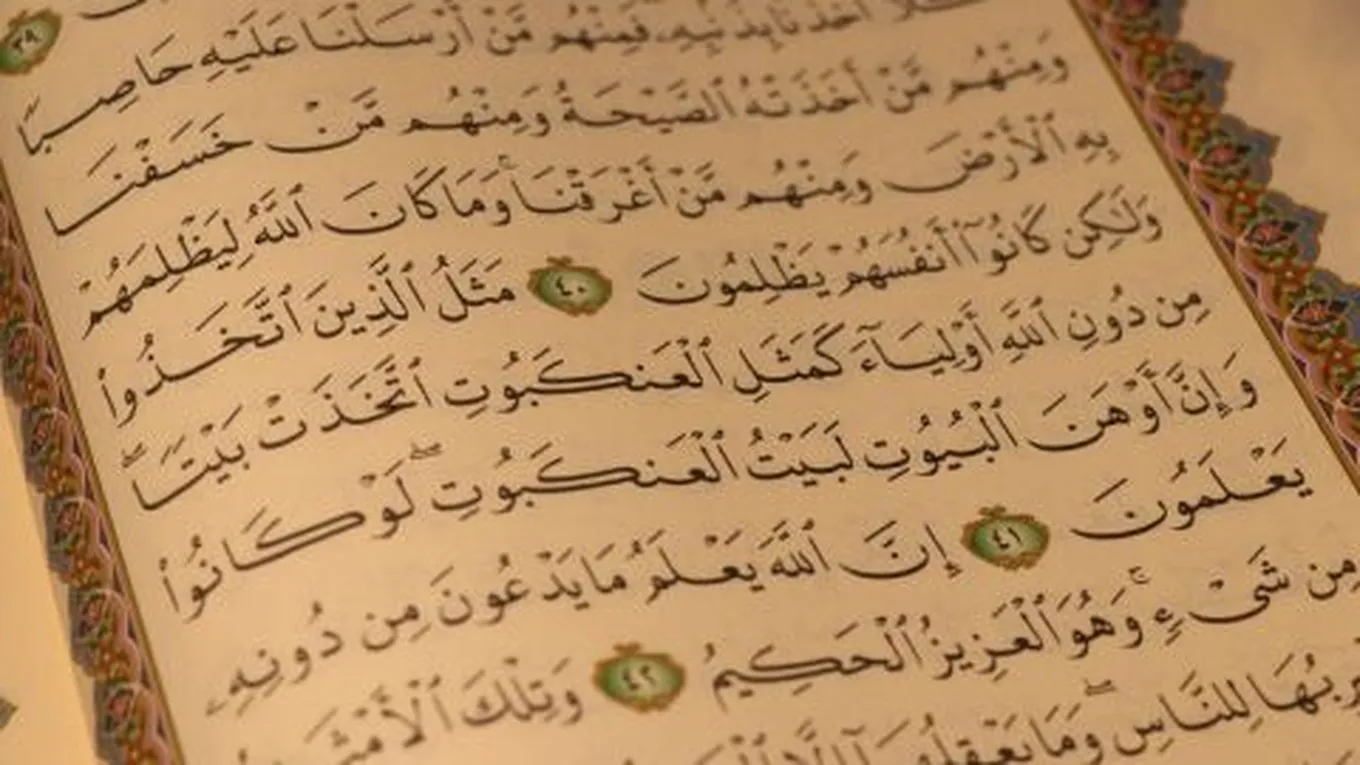 ٣٩
كلا أخذنا بذنبهۦ فمنهم من أرسلنا عليه حاصبا
ومنهم مَّنْ أَخَذَتْهُ ٱلصَّيْحَةُ وَمِنْهُم مَّنْ خَسَفْنَا
بِهِ ٱلْأَرْضَ وَمِنْهُم مَّنْ أَغْرَقْنَاۚ وَمَا كَانَ ٱللَّهُ لِيَظْلِمَهُمْ
وَلَٰكِن كَانُوٓا۟ أَنفُسَهُمْ يَظْلِمُونَ ٤٠ مَثَلُ ٱلَّذِينَ ٱتَّخَذُوا۟
مِن دُونِ ٱللَّهِ أَوْلِيَآءَ كَمَثَلِ ٱلْعَنكَبُوتِ ٱتَّخَذَتْ بَيْتًاۖ
وَإِنَّ أَوْهَنَ ٱلْبُيُوتِ لَبَيْتُ ٱلْعَنكَبُوتِۖ لَوْ كَانُوا۟
يَعْلَمُونَ ٤١ إِنَّ ٱللَّهَ يَعْلَمُ مَا يَدْعُونَ مِن دُونِهِۦ
مِن شَىْءٍۚ وَهُوَ ٱلْعَزِيزُ ٱلْحَكِيمُ ٤٢ وَتِلْكَ
لِلنَّاسِۖ وَمَا